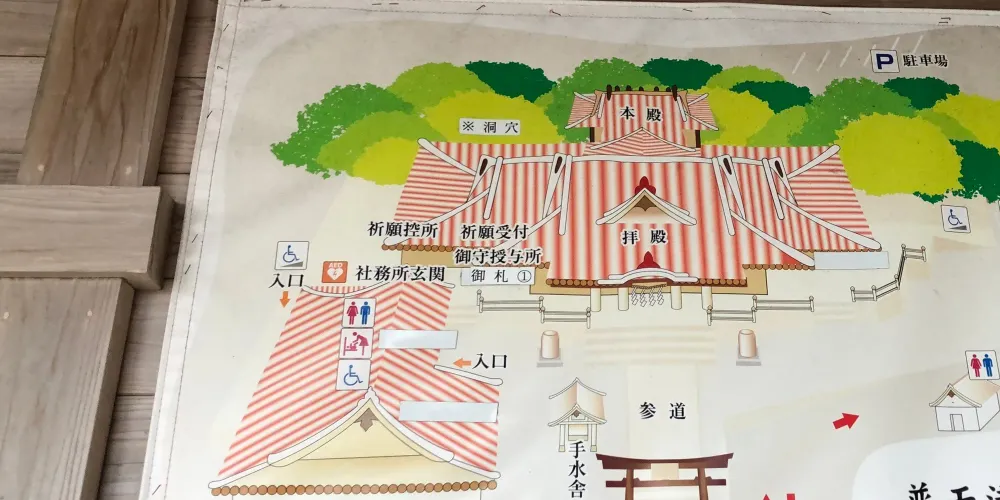 P 駐車場
本殿
※ 洞穴
祈願控所
祈願受付
拝殿
御守授与所
御札①
AED
社務所玄関
入口
入口
参道
手水舎